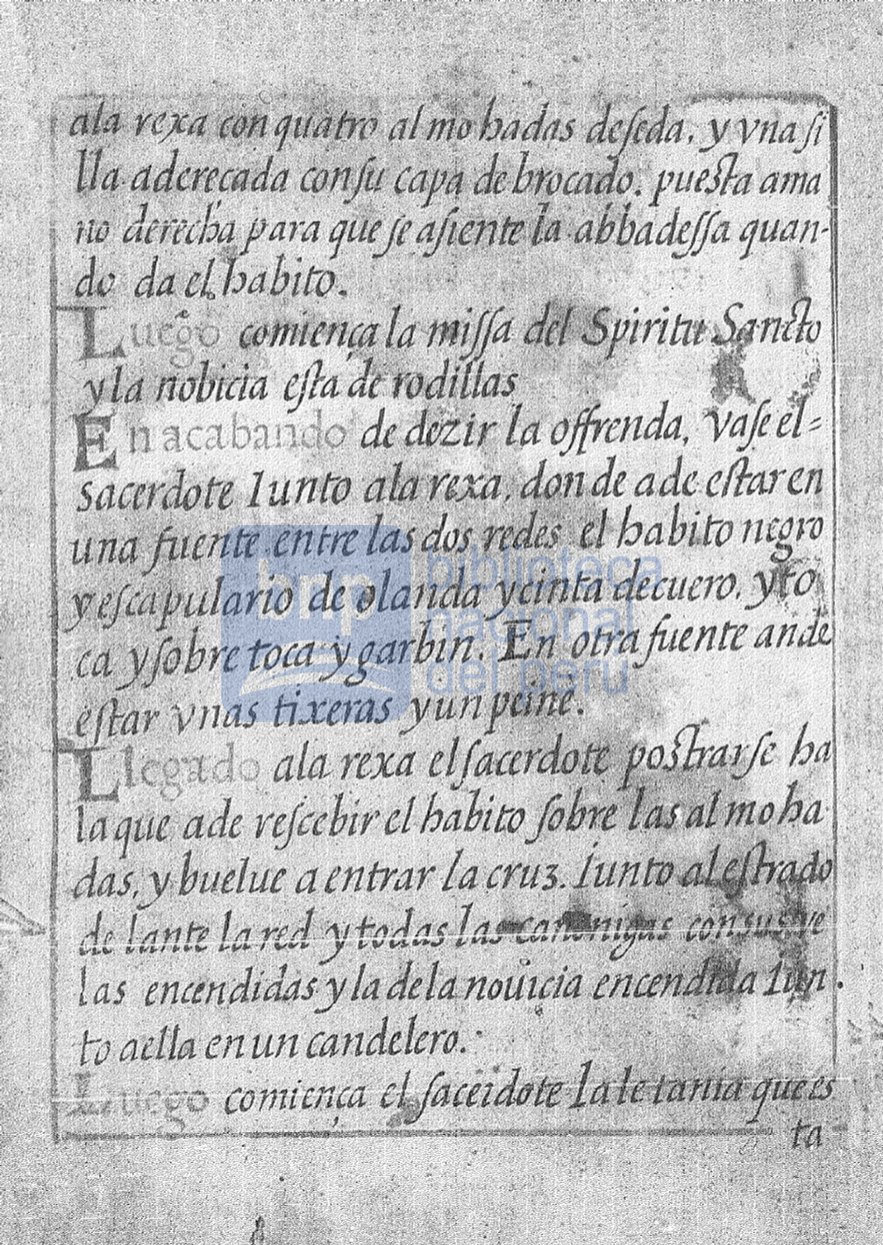 ala rexa con quatro al mo hadas de seda, y vna si
lla adereçada con su capa de brocado, puesta ama
no derecha para que se asiente la abbadessa quan-
do da el habito.
Luego comiença la missa del Spiritu Sancto
y la nobicia esta de rodillas
En acabando de dezir la offrenda, vase el=
sacerdote Iunto ala rexa, donde ade estar en
una fuente entre las dos redes el habito negro
y escapulario de olanda y cinta de cuero, y to
ca y sobre toca y garbin. En otra fuente ande
estar vnas tixeras y un peine.
Llegado ala rexa el sacerdote postrarse ha
la que ade rescebir el habito sobre las al mo ha
das, y buelue a entrar la cruz. Iunto al estrado
de lante la red y todas las canonigas con sus ve
las encendidas y la de la nouicia encendida Iun
to aella en un candelero.
Luego comiença el sacerdote la le tania que es
ta
bnp biblioteca
nacional
del perú